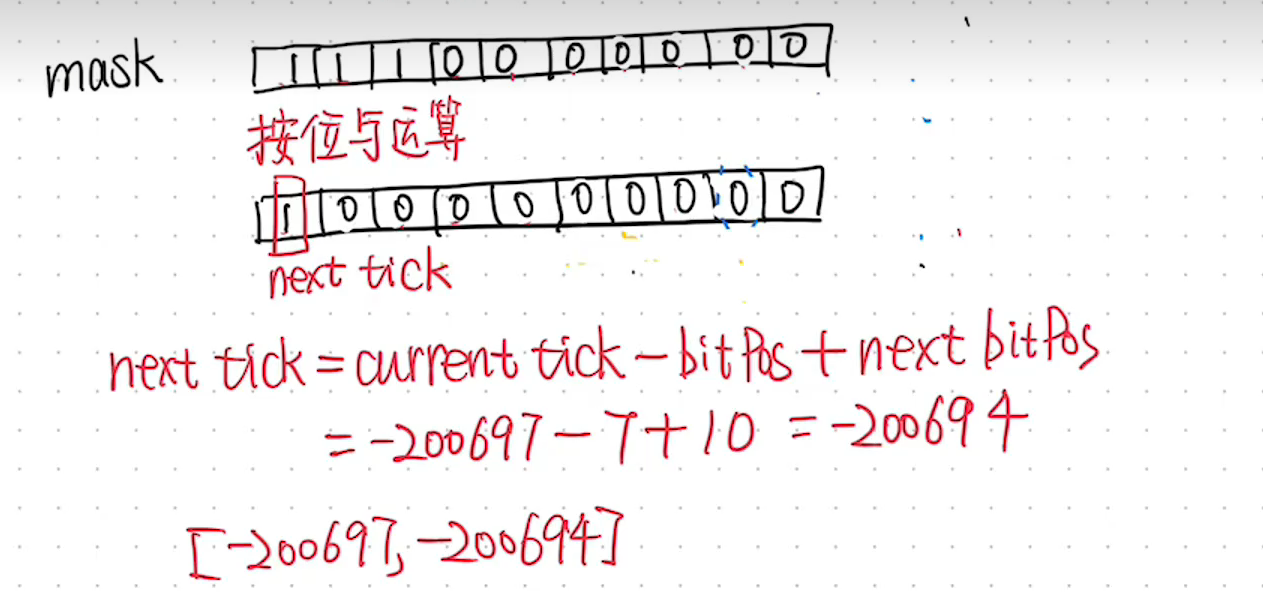 mask 1 1 1 0 0 0 0 0 0 0
按位与运算
1 0 0 0 0 0 0 0 0 0
next tick
next tick = current tick - bitPos + next bitPos
= -200697 - 7 + 10 = -200694
[-200697, -200694]